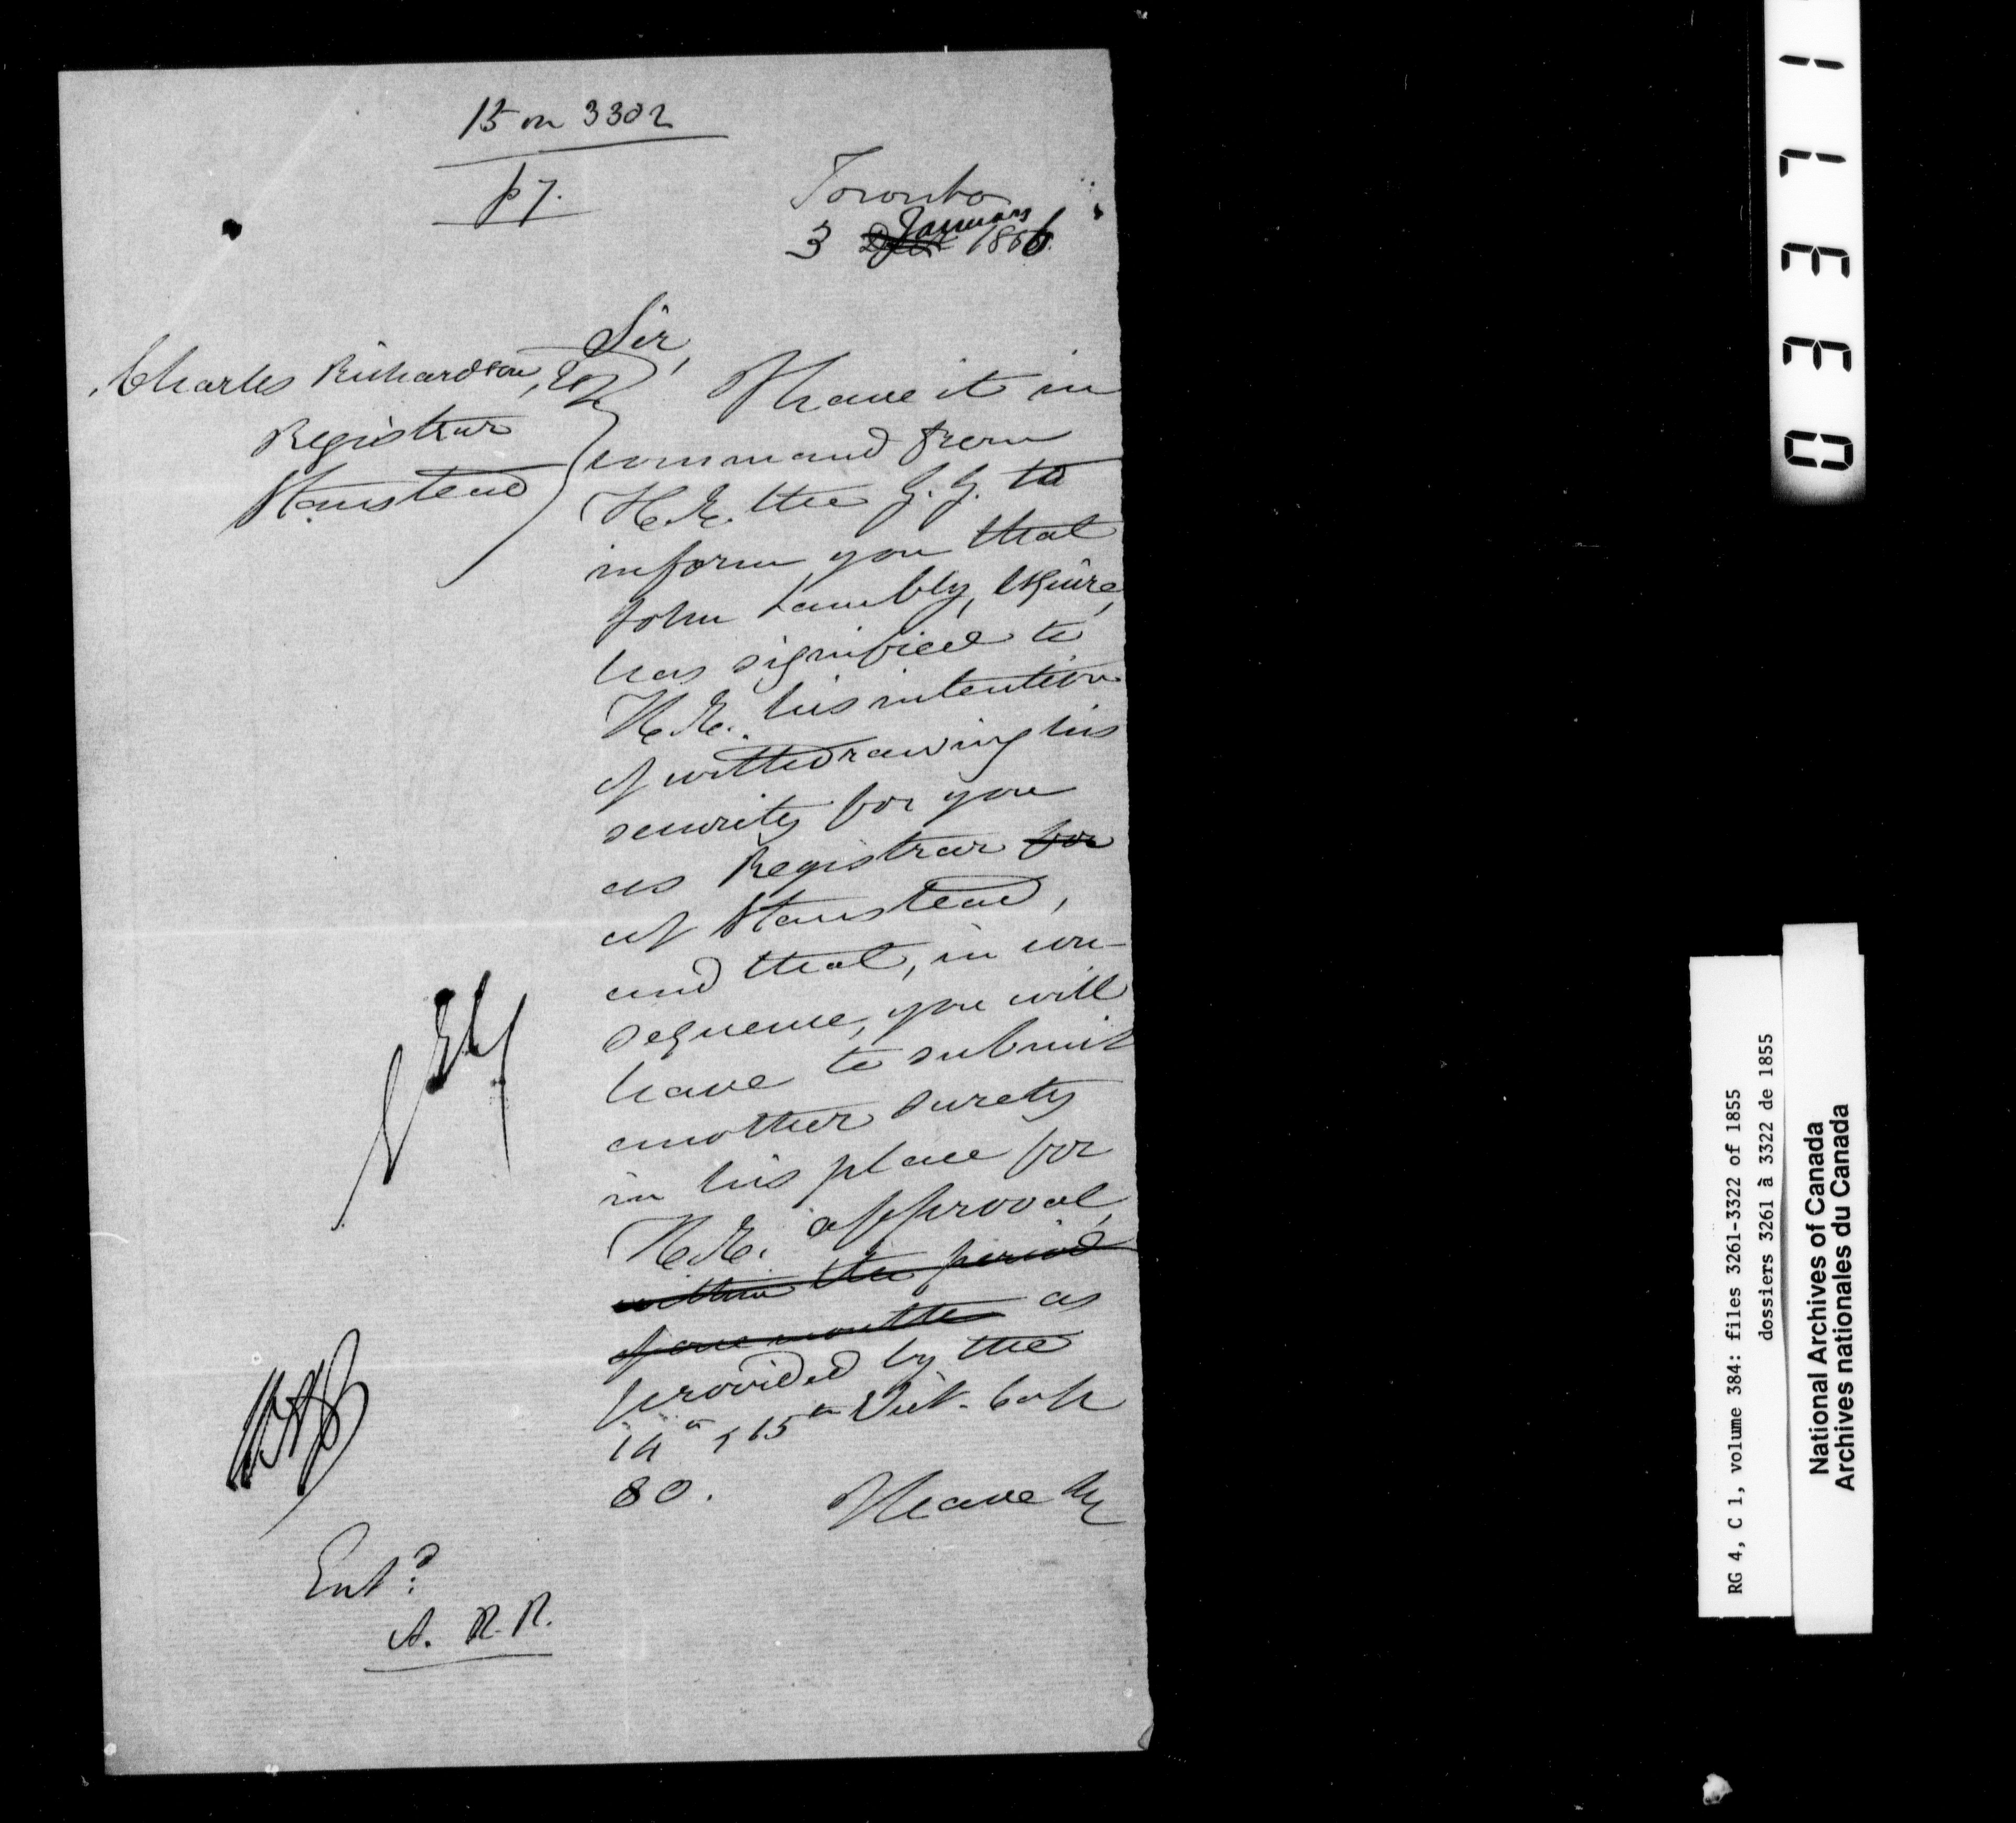 15 on 3302
p 7.
Toronto
3 January 1856.
Sir,
Charles Richardson, Esq
Registrar
Stanstead
I have it in
command from
H.E. the G.G. to
inform you that
John Lambly, Esquire,
has signified to
H.E. his intention
of withdrawing his
security for you
as Registrar for
of Stanstead,
and that, in con-
sequence, you will
have to submit
another surety
in his place for
H.E. approval,
within the period
of one month as
provided by the
14th & 15th Vict. Cap
80.
I have &c
Ent.d
A. R. R.
03371
RG 4, C 1, volume 384: files 3261-3322 of 1855
dossiers 3261 à 3322 de 1855
National Archives of Canada
Archives nationales du Canada